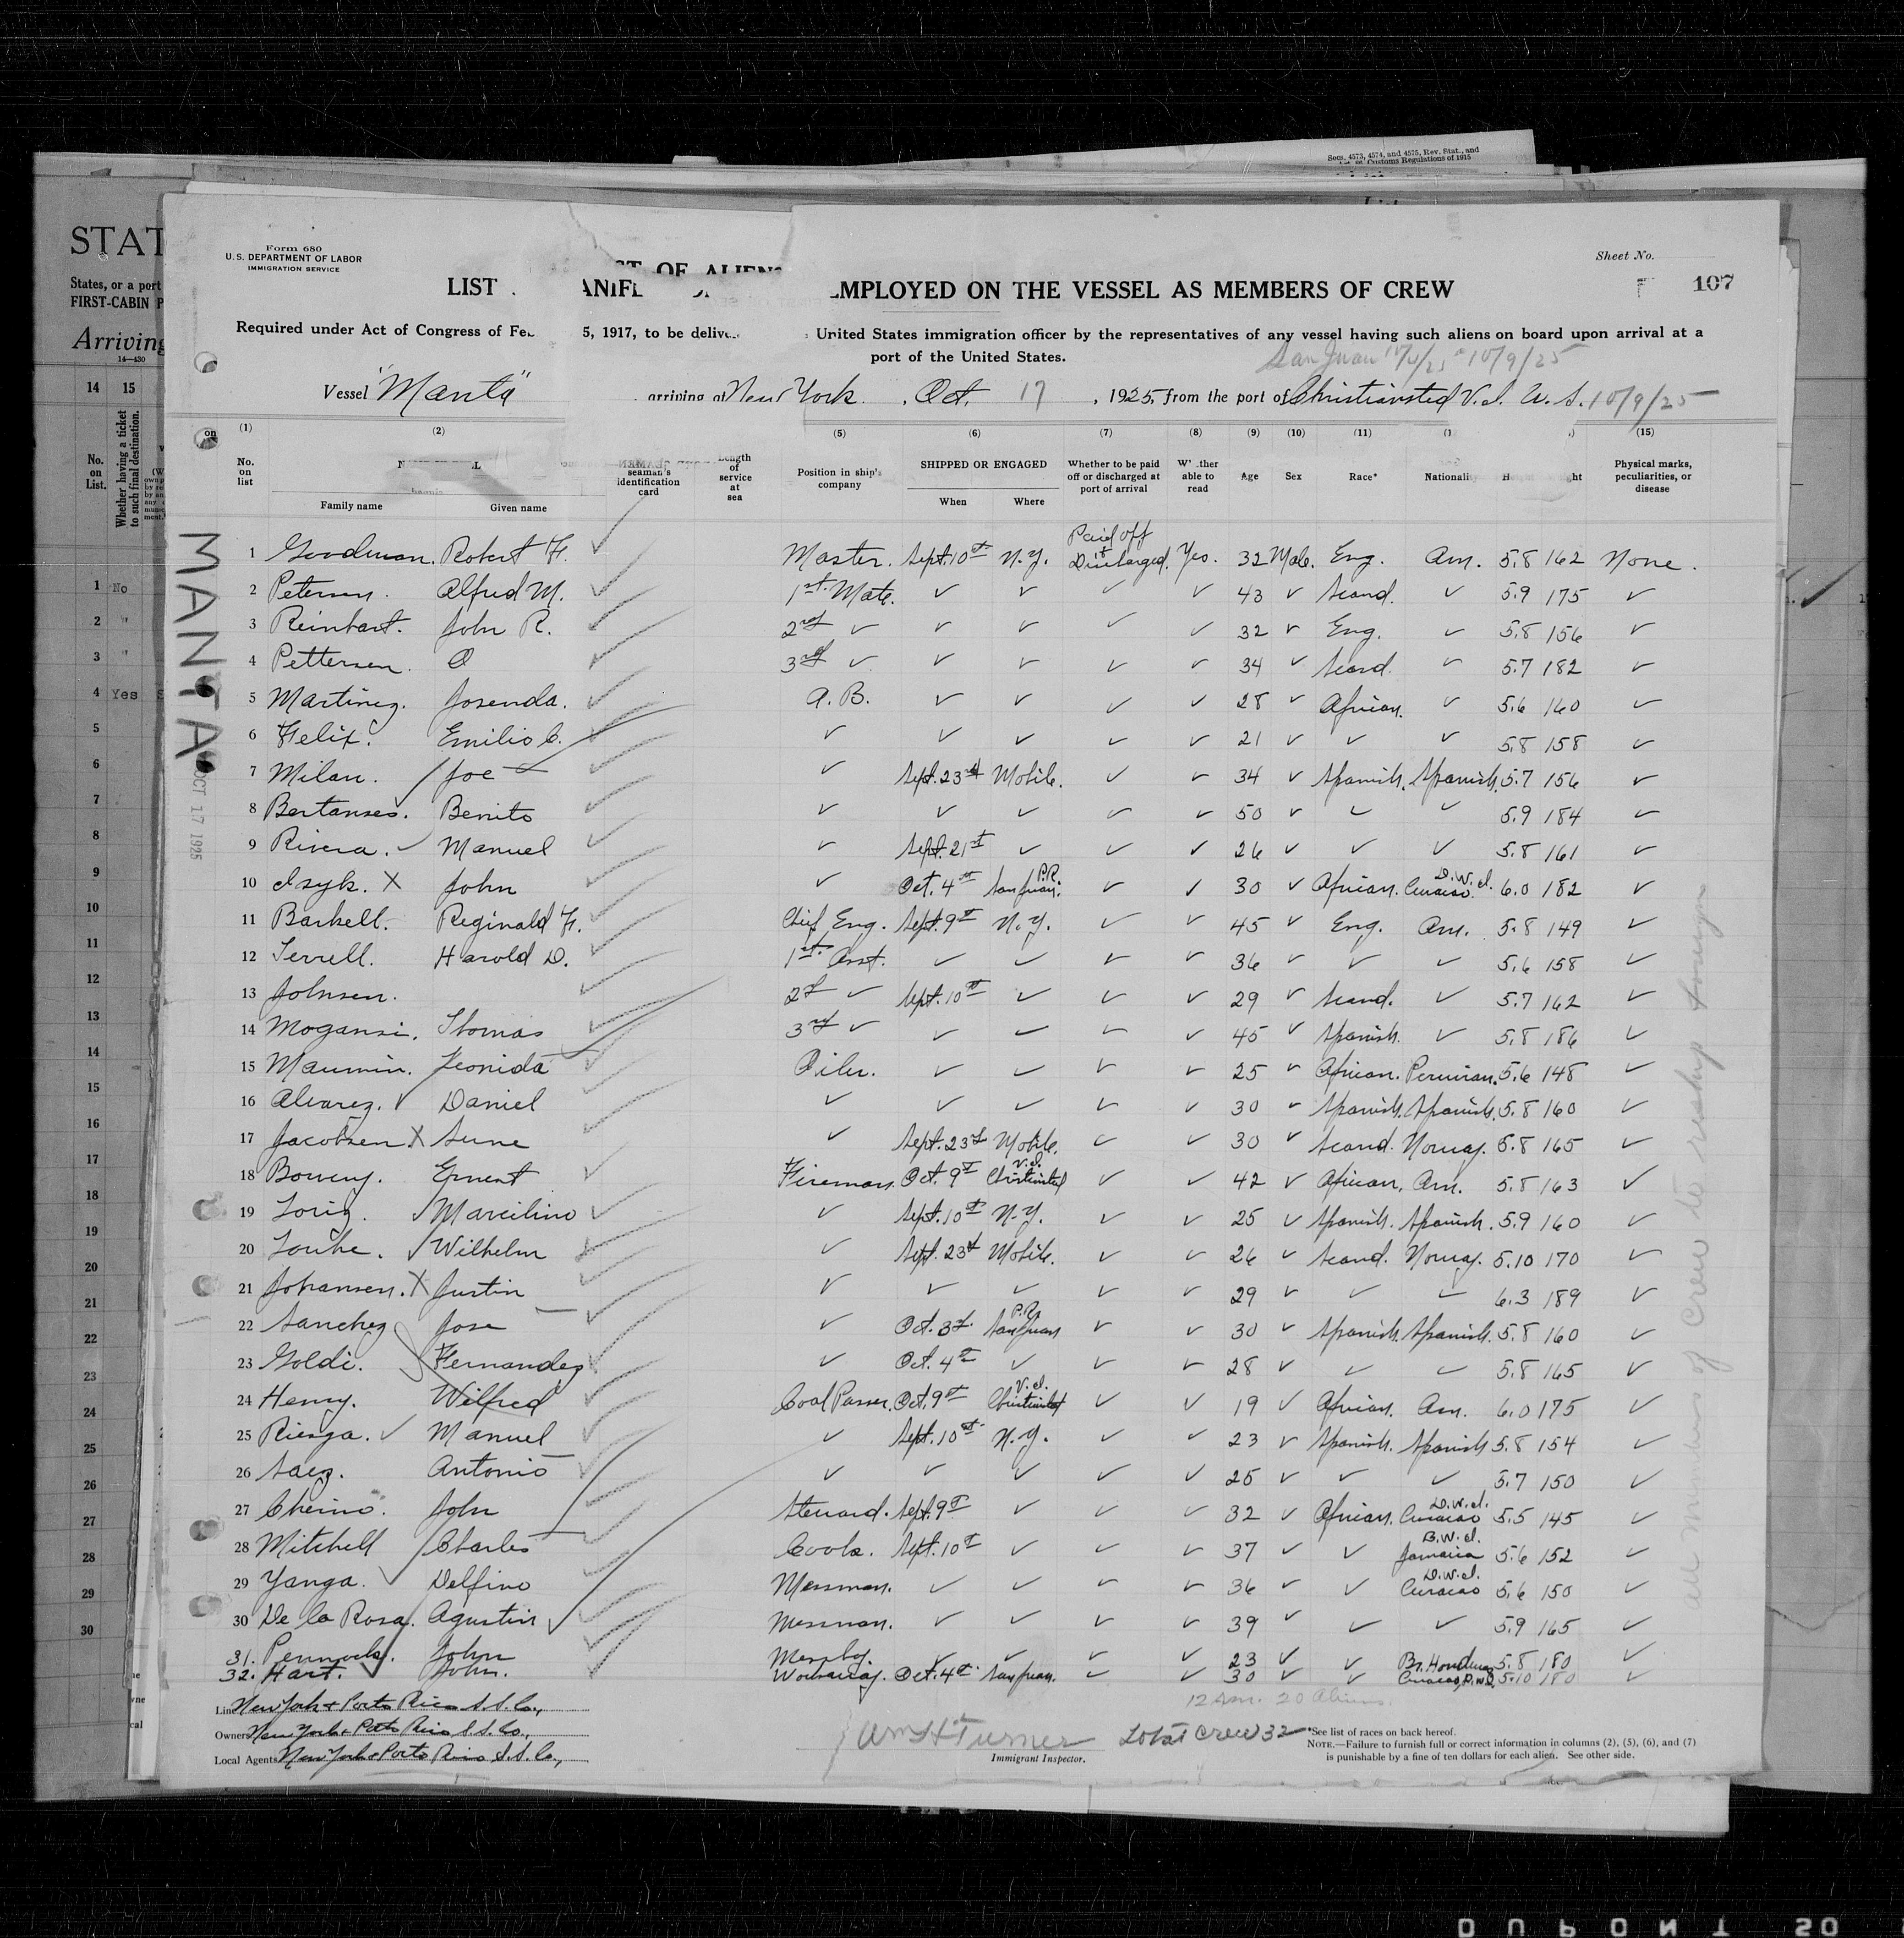 Secs. 4573, 4574, and 4575, Rev. Stat., and
Customs Regulations of 1915
STAT
States, or a port
FIRST-CABIN P
Arriving
14—430
14 15
No. on List.
Whether having a ticket to such final destination.
1 No
2 "
3 "
4 Yes S
5
6
7
8
9
10
11
12
13
14
15
16
17
18
19
20
21
22
23
24
25
26
27
28
29
30
Form 680
U.S. DEPARTMENT OF LABOR
IMMIGRATION SERVICE
Sheet No.
107
LIST ANIFE EMPLOYED ON THE VESSEL AS MEMBERS OF CREW
Required under Act of Congress of Fe 5, 1917, to be delive United States immigration officer by the representatives of any vessel having such aliens on board upon arrival at a
port of the United States.
San Juan 10/9/25
Vessel "Manta" arriving at New York, Oct. 17, 1925, from the port of Christiansted V.I. U.S. 10/9/25
(1) (2) (5) (6) (7) (8) (9) (10) (11) (15)
No. on list
Family name Given name
seaman's identification card
Length of service at sea
Position in ship's company
SHIPPED OR ENGAGED
When Where
Whether to be paid off or discharged at port of arrival
Whether able to read
Age Sex Race* Nationality
Physical marks, peculiarities, or disease
MANTA
OCT 17 1925
1 Goodman. Robert F. ✓ Master. Sept. 10th N.Y. Paid off Discharged. Yes. 32 Male. Eng. Am. 5.8 162 None.
2 Petersen. Alfred M. ✓ 1st Mate. ✓ ✓ ✓ ✓ 43 ✓ Scand. ✓ 5.9 175 ✓
3 Reinhart. John R. ✓ 2nd ✓ ✓ ✓ ✓ ✓ 32 ✓ Eng. ✓ 5.8 156 ✓
4 Pettersen. O ✓ 3rd ✓ ✓ ✓ ✓ ✓ 34 ✓ Scand. ✓ 5.7 182 ✓
5 Martinez. Josenda. ✓ A.B. ✓ ✓ ✓ ✓ 28 ✓ African. ✓ 5.6 160 ✓
6 Felix. Emilio C. ✓ ✓ ✓ ✓ ✓ ✓ 21 ✓ ✓ ✓ 5.8 158 ✓
7 Milan. Joe ✓ ✓ Sept. 23rd Mobile. ✓ ✓ 34 ✓ Spanish. Spanish. 5.7 156 ✓
8 Bertanses. Benito ✓ ✓ ✓ ✓ ✓ ✓ 50 ✓ ✓ ✓ 5.9 184 ✓
9 Rivera. ✓ Manuel ✓ ✓ Sept. 21st ✓ ✓ ✓ 26 ✓ ✓ ✓ 5.8 161 ✓
10 Isyk. X John ✓ ✓ Oct. 4th San Juan. P.R. ✓ ✓ 30 ✓ African. Curacao. D.W.I. 6.0 182 ✓
11 Barkell. Reginald F. ✓ Chief Eng. Sept. 9th N.Y. ✓ ✓ 45 ✓ Eng. Am. 5.8 149 ✓
12 Terrell. Harold D. ✓ 1st Asst. ✓ ✓ ✓ ✓ 36 ✓ ✓ ✓ 5.6 158 ✓
13 Johnsen. ✓ 2d ✓ Sept. 10th ✓ ✓ ✓ 29 ✓ Scand. ✓ 5.7 162 ✓
14 Mogansi. Thomas ✓ 3rd ✓ ✓ ✓ ✓ ✓ 45 ✓ Spanish. ✓ 5.8 186 ✓
15 Maumin. Leonida ✓ Oiler. ✓ ✓ ✓ ✓ 25 ✓ African. Peruvian. 5.6 148 ✓
16 Alvarez. ✓ Daniel ✓ ✓ ✓ ✓ ✓ ✓ 30 ✓ Spanish. Spanish. 5.8 160 ✓
17 Jacobsen X Sune ✓ ✓ Sept. 23d Mobile. ✓ ✓ 30 ✓ Scand. Norway. 5.8 165 ✓
18 Bowery. Ernest ✓ Fireman. Oct. 9th Christiansted V.I. ✓ ✓ 42 ✓ African. Am. 5.8 163 ✓
19 Loriz. ✓ Marcilino ✓ ✓ Sept. 10th N.Y. ✓ ✓ 25 ✓ Spanish. Spanish. 5.9 160 ✓
20 Louhe. ✓ Wilhelm ✓ ✓ Sept. 23d Mobile. ✓ ✓ 26 ✓ Scand. Norway. 5.10 170 ✓
21 Johansen. X Justin ✓ ✓ ✓ ✓ ✓ ✓ 29 ✓ ✓ ✓ 6.3 189 ✓
22 Sanchez Jose ✓ ✓ Oct. 3d. San Juan P.R. ✓ ✓ 30 ✓ Spanish. Spanish. 5.8 160 ✓
23 Goldi. Fernandez ✓ ✓ Oct. 4th ✓ ✓ ✓ 28 ✓ ✓ ✓ 5.8 165 ✓
24 Henry. Wilfred ✓ Coal Passer. Oct. 9th Christiansted V.I. ✓ ✓ 19 ✓ African. Am. 6.0 175 ✓
25 Riesga. ✓ Manuel ✓ ✓ Sept. 10th N.Y. ✓ ✓ 23 ✓ Spanish. Spanish 5.8 154 ✓
26 Saez. Antonio ✓ ✓ ✓ ✓ ✓ ✓ 25 ✓ ✓ ✓ 5.7 150 ✓
27 Cherino. John ✓ Steward. Sept. 9th ✓ ✓ ✓ 32 ✓ African. Curacao D.W.I. 5.5 145 ✓
28 Mitchell Charles ✓ Cook. Sept. 10th ✓ ✓ ✓ 37 ✓ ✓ Jamaica B.W.I. 5.6 152 ✓
29 Yanga. ✓ Delfino ✓ Messman. ✓ ✓ ✓ ✓ 36 ✓ ✓ Curacao D.W.I. 5.6 150 ✓
30 De la Rosa. Agustin ✓ Messman. ✓ ✓ ✓ ✓ 39 ✓ ✓ ✓ 5.9 165 ✓
31. Pennock. John ✓ Messboy. ✓ ✓ ✓ ✓ 23 ✓ ✓ Br. Honduras 5.8 180 ✓
32. Hart. John. ✓ Oct. 4th San Juan. ✓ ✓ 30 ✓ ✓ Curacao, D.W.I. 5.10 180 ✓
All members of crew to reship foreign
12 Am. 20 Aliens.
Line New York & Porto Rico S.S. Co.,
Owners New York & Porto Rico S.S. Co.,
Local Agents New York & Porto Rico S.S. Co.,
Wm H Turner
Immigrant Inspector.
Total Crew 32
*See list of races on back hereof.
NOTE.—Failure to furnish full or correct information in columns (2), (5), (6), and (7)
is punishable by a fine of ten dollars for each alien. See other side.
DUPONT 50